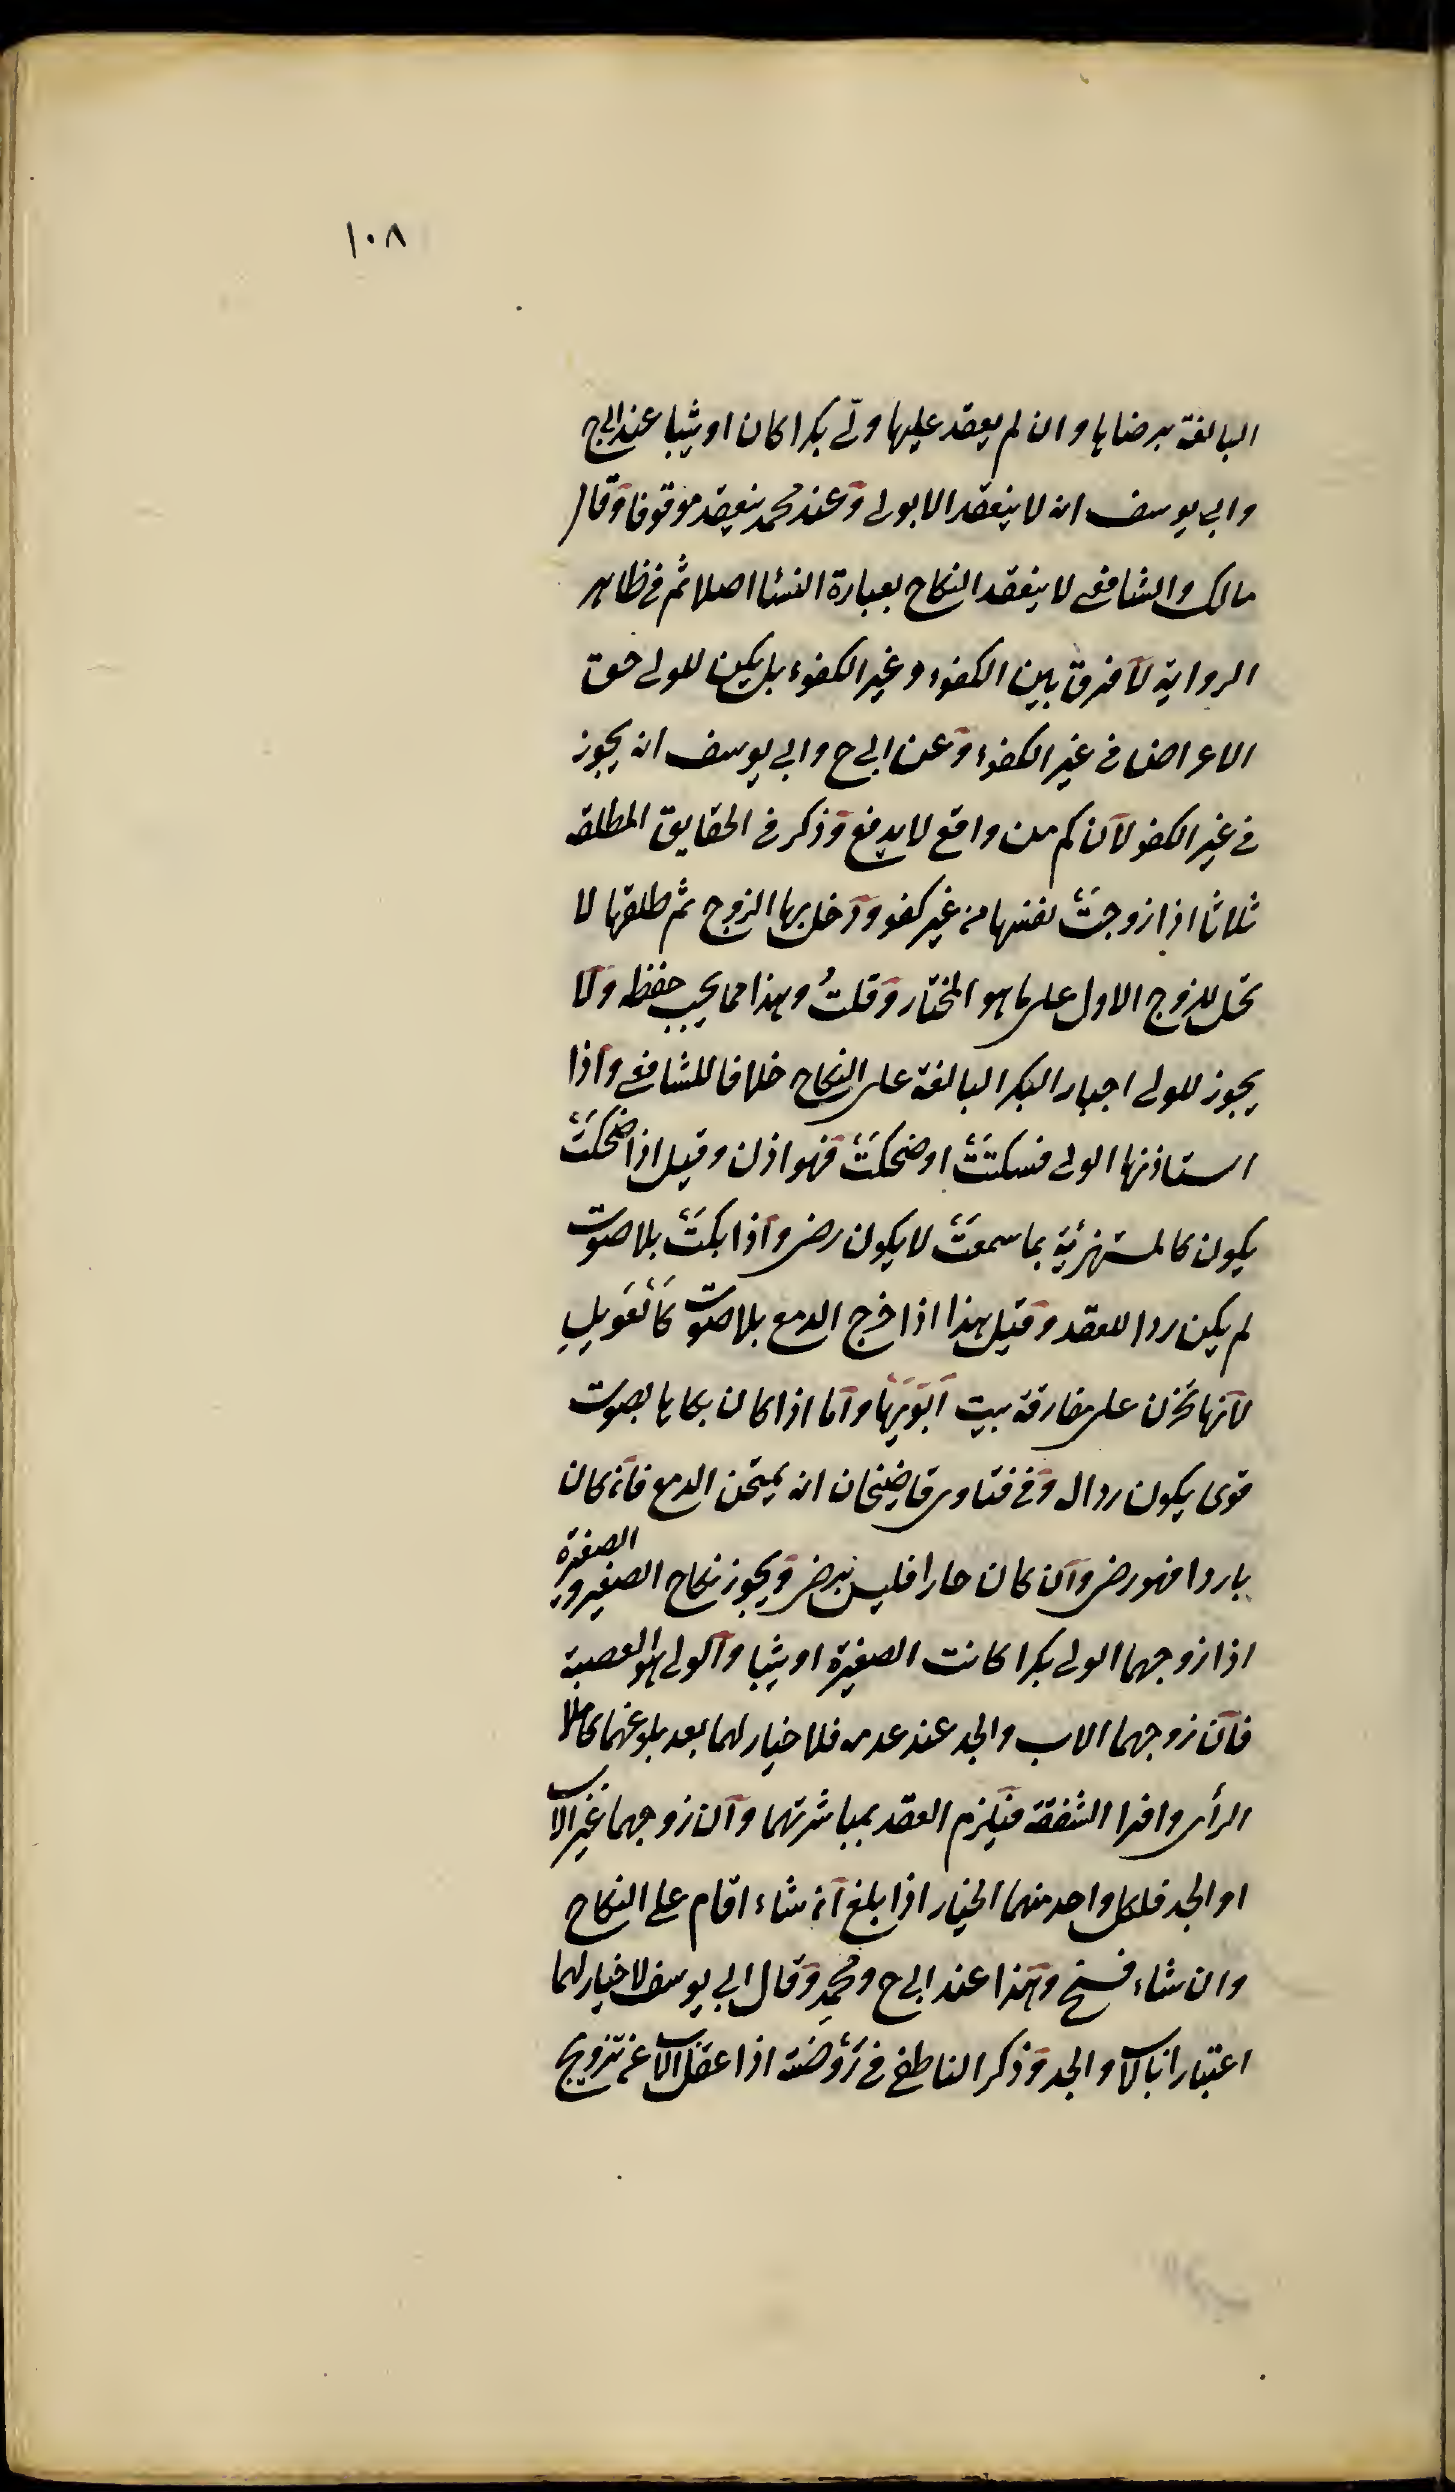 ١٠٨
البالغة برضاها وان لم يعقد عليها ولّى بكرا كان او ثيبا عند ابى ح
وابى يوسف انه لا ينعقد الا بولى وعند محمد ينعقد موقوفا وقال
مالك والشافعى لا ينعقد النكاح بعبارة النساء اصلا ثم فى ظاهر
الرواية لا فرق بين الكفوء وغير الكفوء بل يكون للولى حق
الاعراض فى غير الكفوء وعن ابى ح وابى يوسف انه يجوز
فى غير الكفو لان كم من واقع لا يدفع وذكر فى الحقايق المطلقه
ثلاثا اذا زوجتْ نفسها من غير كفو ودخل بها الزوج ثم طلقها لا
تحل للزوج الاول على ما هو المختار وقلتُ وهذا مما يجب حفظه ولا
يجوز للولى اجبار البكر البالغة على النكاح خلافا للشافعى واذا
استاذنها الولى فسكتَتْ او ضحكَتْ فهو اذن وقيل اذا ضحكَتْ
يكون كالمستهزئة بما سمعَتْ لا يكون رضى واذا بكَتْ بلا صوت
لم يكن ردا للعقد وقيل هذا اذا خرج الدمع بلا صوت كَالْعَوِيلِ
لانها تحزن على مفارقة بيت اَبَوَيْهَا واما اذا كان بكاها بصوت
قوى يكون ردا له وفى فتاوى قاضيخان انه يمتحن الدمع فان كان
باردا فهو رضى وان كان حارا فليس برضى ويجوز نكاح الصغير والصغيرة
اذا زوجهما الولى بكرا كانت الصغيرة او ثيبا والولى هو العصبة
فان زوجهما الاب والجد عند عدمه فلا خيار لهما بعد بلوغهما كاملا
الرأى وافرا الشفقة فيلزم العقد بمباشرتهما وان زوجهما غير الاب
او الجد فلكل واحد منهما الخيار اذا بلغ ان شاء اقام على النكاح
وان شاء فسخ وهذا عند ابى ح ومحمدٍ وقال ابى يوسف لا خيار لهما
اعتبارا بالاب والجد وذكر الناطفى فى رَوْضَته اذا عضل الاب عن تزويج